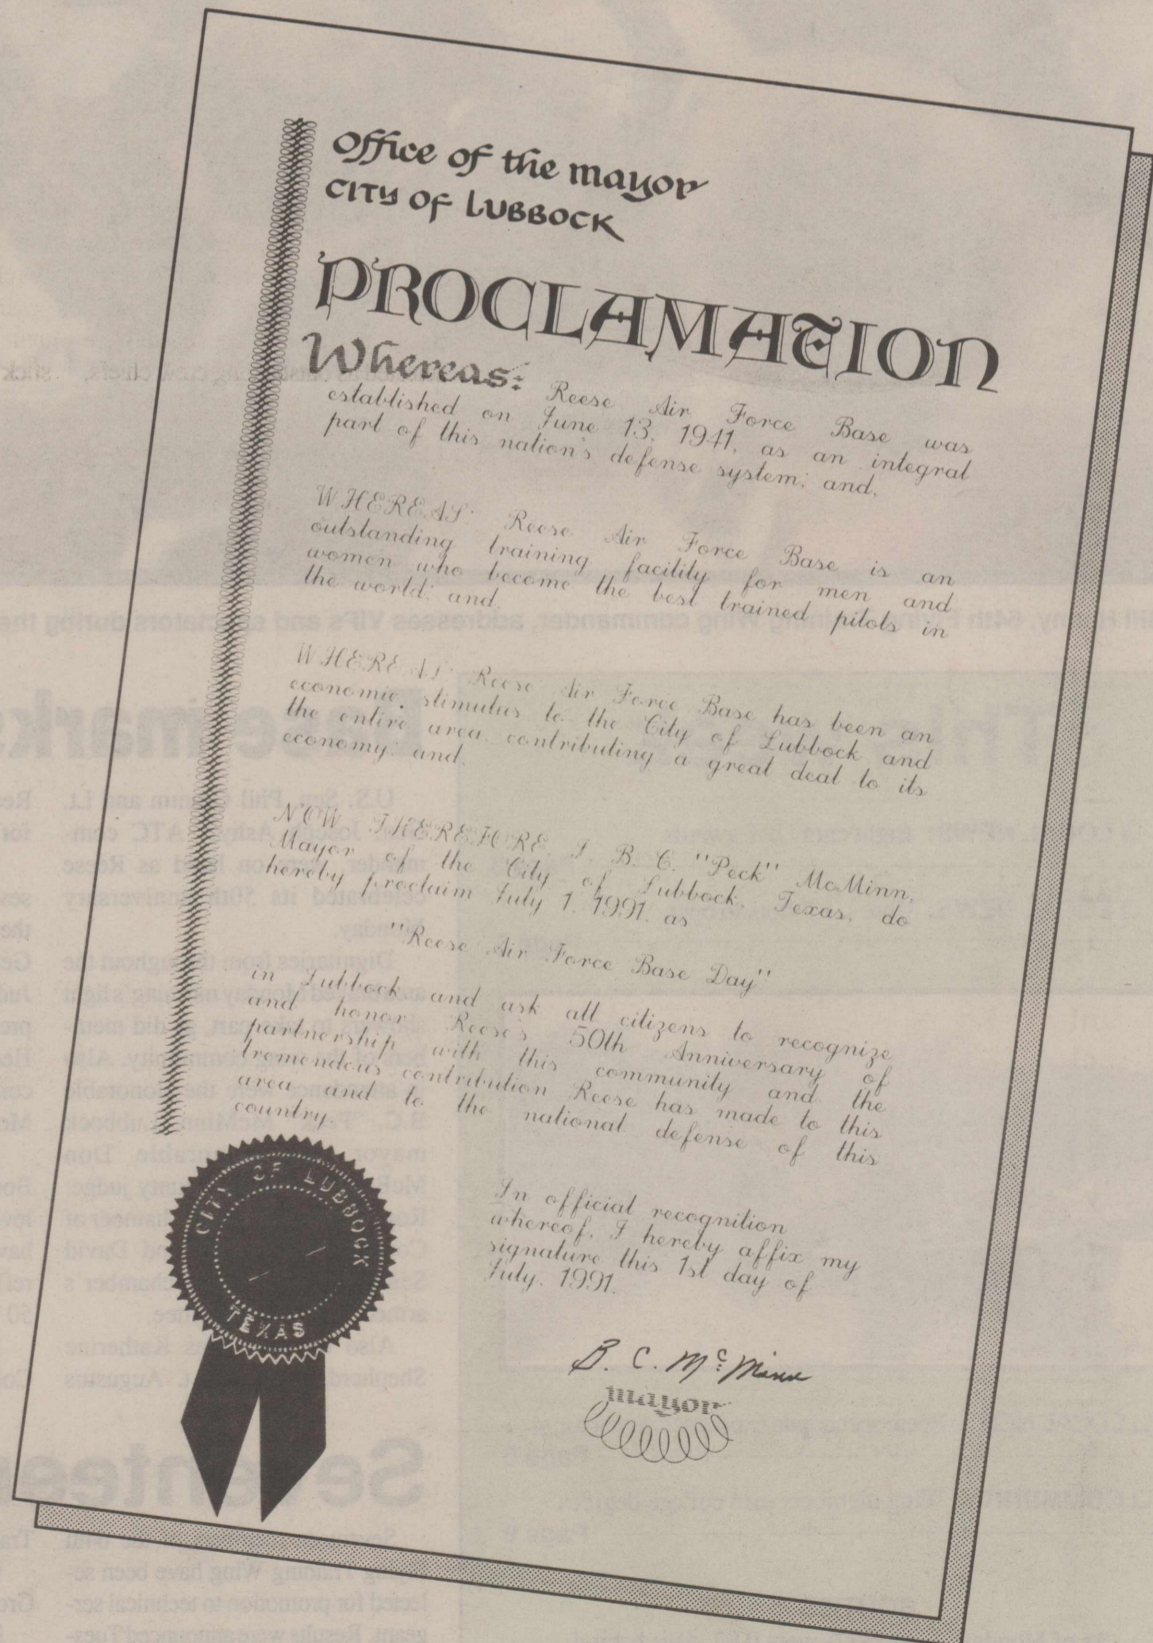 Office of the mayor
CITY OF LUBBOCK
PROCLAMATION
Whereas: Reese Air Force Base was
established on June 13, 1941, as an integral
part of this nation's defense system; and,
WHEREAS: Reese Air Force Base is an
outstanding training facility for men and
women who become the best trained pilots in
the world; and,
WHEREAS: Reese Air Force Base has been an
economic stimulus to the City of Lubbock and
the entire area, contributing a great deal to its
economy; and,
NOW, THEREFORE, I B. C. "Peck" McMinn,
Mayor of the City of Lubbock, Texas, do
hereby proclaim July 1, 1991, as
"Reese Air Force Base Day"
in Lubbock and ask all citizens to recognize
and honor Reese's 50th Anniversary of
partnership with this community and the
tremendous contribution Reese has made to this
area and to the national defense of this
country.
In official recognition
whereof, I hereby affix my
signature this 1st day of
July, 1991.
B. C. McMinn
mayor
CITY OF LUBBOCK
TEXAS